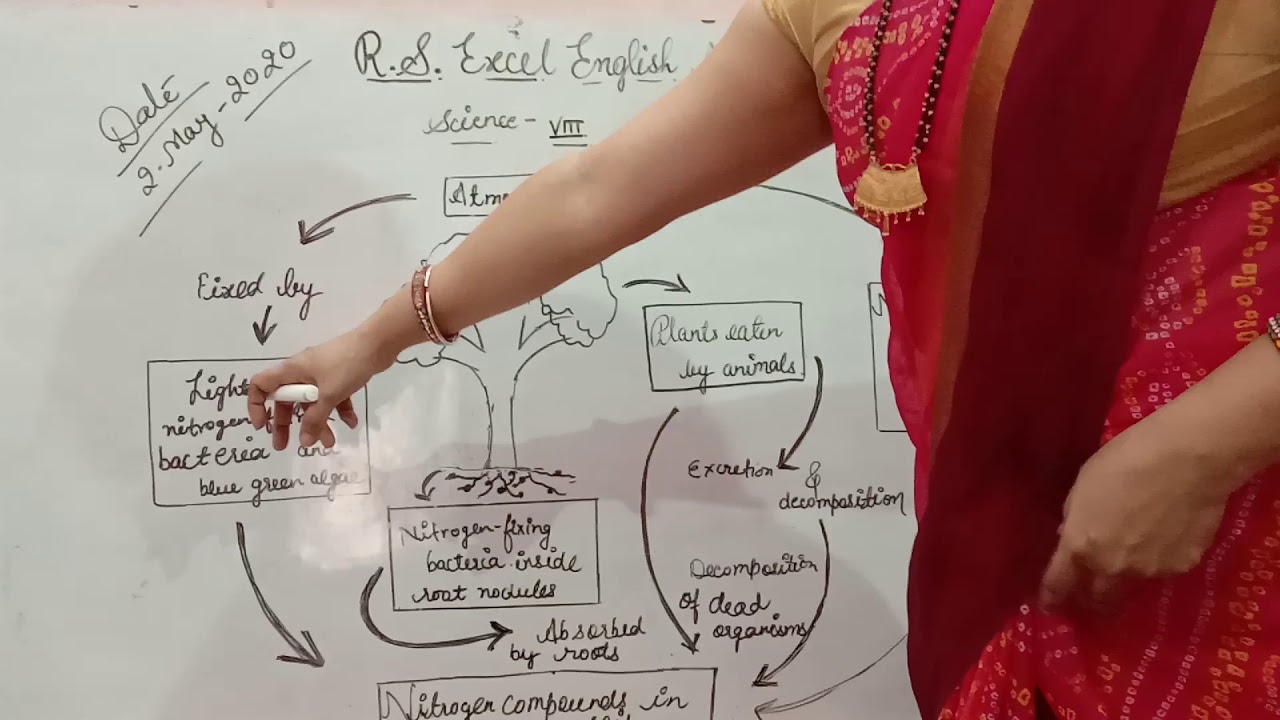 Date
2. May - 2020
R.S. Excel English
Science - VIII
Fixed by
nitrogen
bacteria and
blue green algae
Plants eaten
by animals
Excretion &
decomposition
Nitrogen-fixing
bacteria inside
root nodules
Absorbed
by roots
Decomposition
of dead
organisms
Nitrogen compounds in